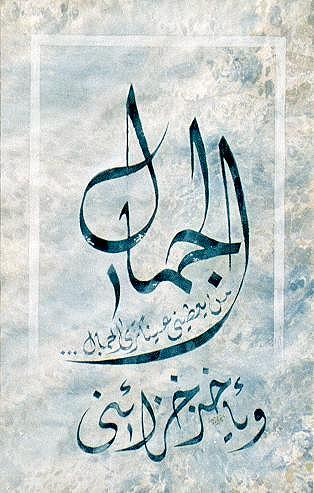 الجمال
من يعطيني عينا ترى الجمال ...
ويأخذ خزائني